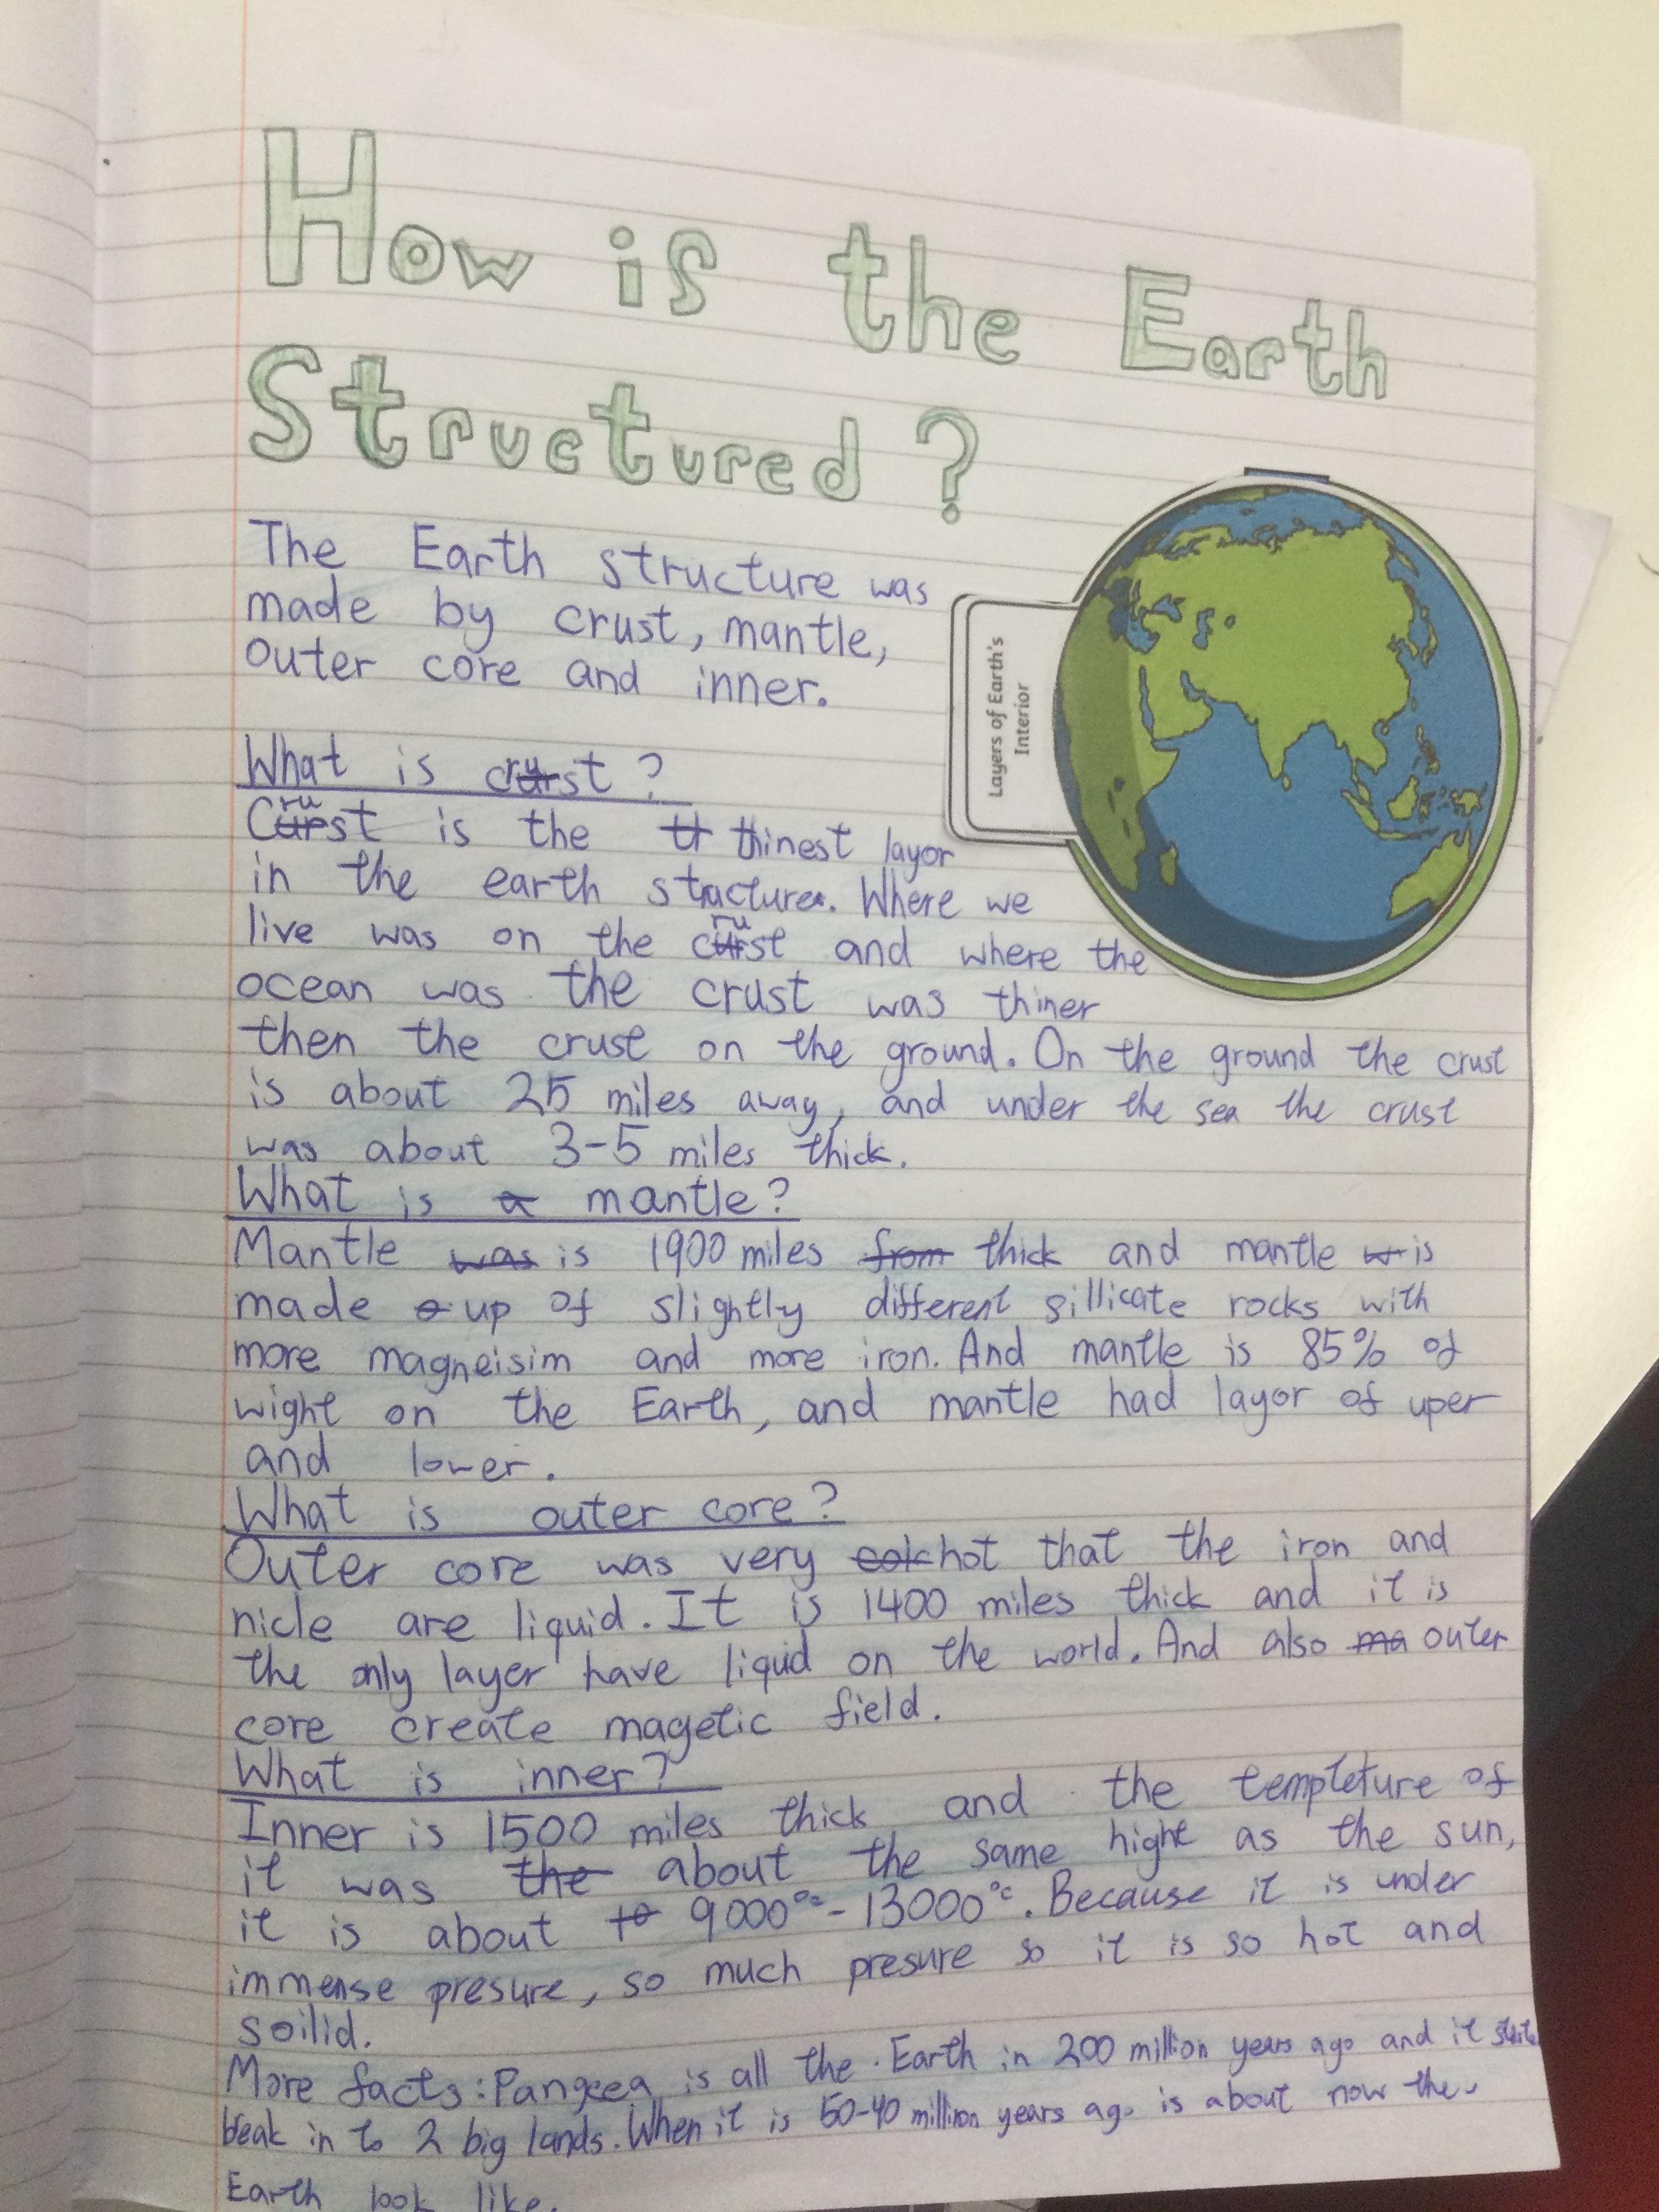 How is the Earth
Structured?
The Earth structure was
made by crust, mantle,
outer core and inner.
Layers of Earth's
Interior
What is crust?
Crust is the thinest layor
in the earth stucture. Where we
live was on the crust and where the
ocean was the crust was thiner
then the crust on the ground. On the ground the crust
is about 25 miles away, and under the sea the crust
was about 3-5 miles thick.
What is mantle?
Mantle is 1900 miles thick and mantle is
made up of slightly different sillicate rocks with
more magneisim and more iron. And mantle is 85% of
wight on the Earth, and mantle had layor of uper
and lower.
What is outer core?
Outer core was very hot that the iron and
nicle are liquid. It is 1400 miles thick and it is
the only layer have liquid on the world. And also outer
core create magetic field.
What is inner?
Inner is 1500 miles thick and the templeture of
it was about the same hight as the sun,
it is about 9000°c-13000°c. Because it is under
immense presure, so much presure so it is so hot and
soilid.
More facts: Pangeea is all the Earth in 200 million years ago and it
break in to 2 big lands. When it is 50-40 million years ago is about now the
Earth look like.